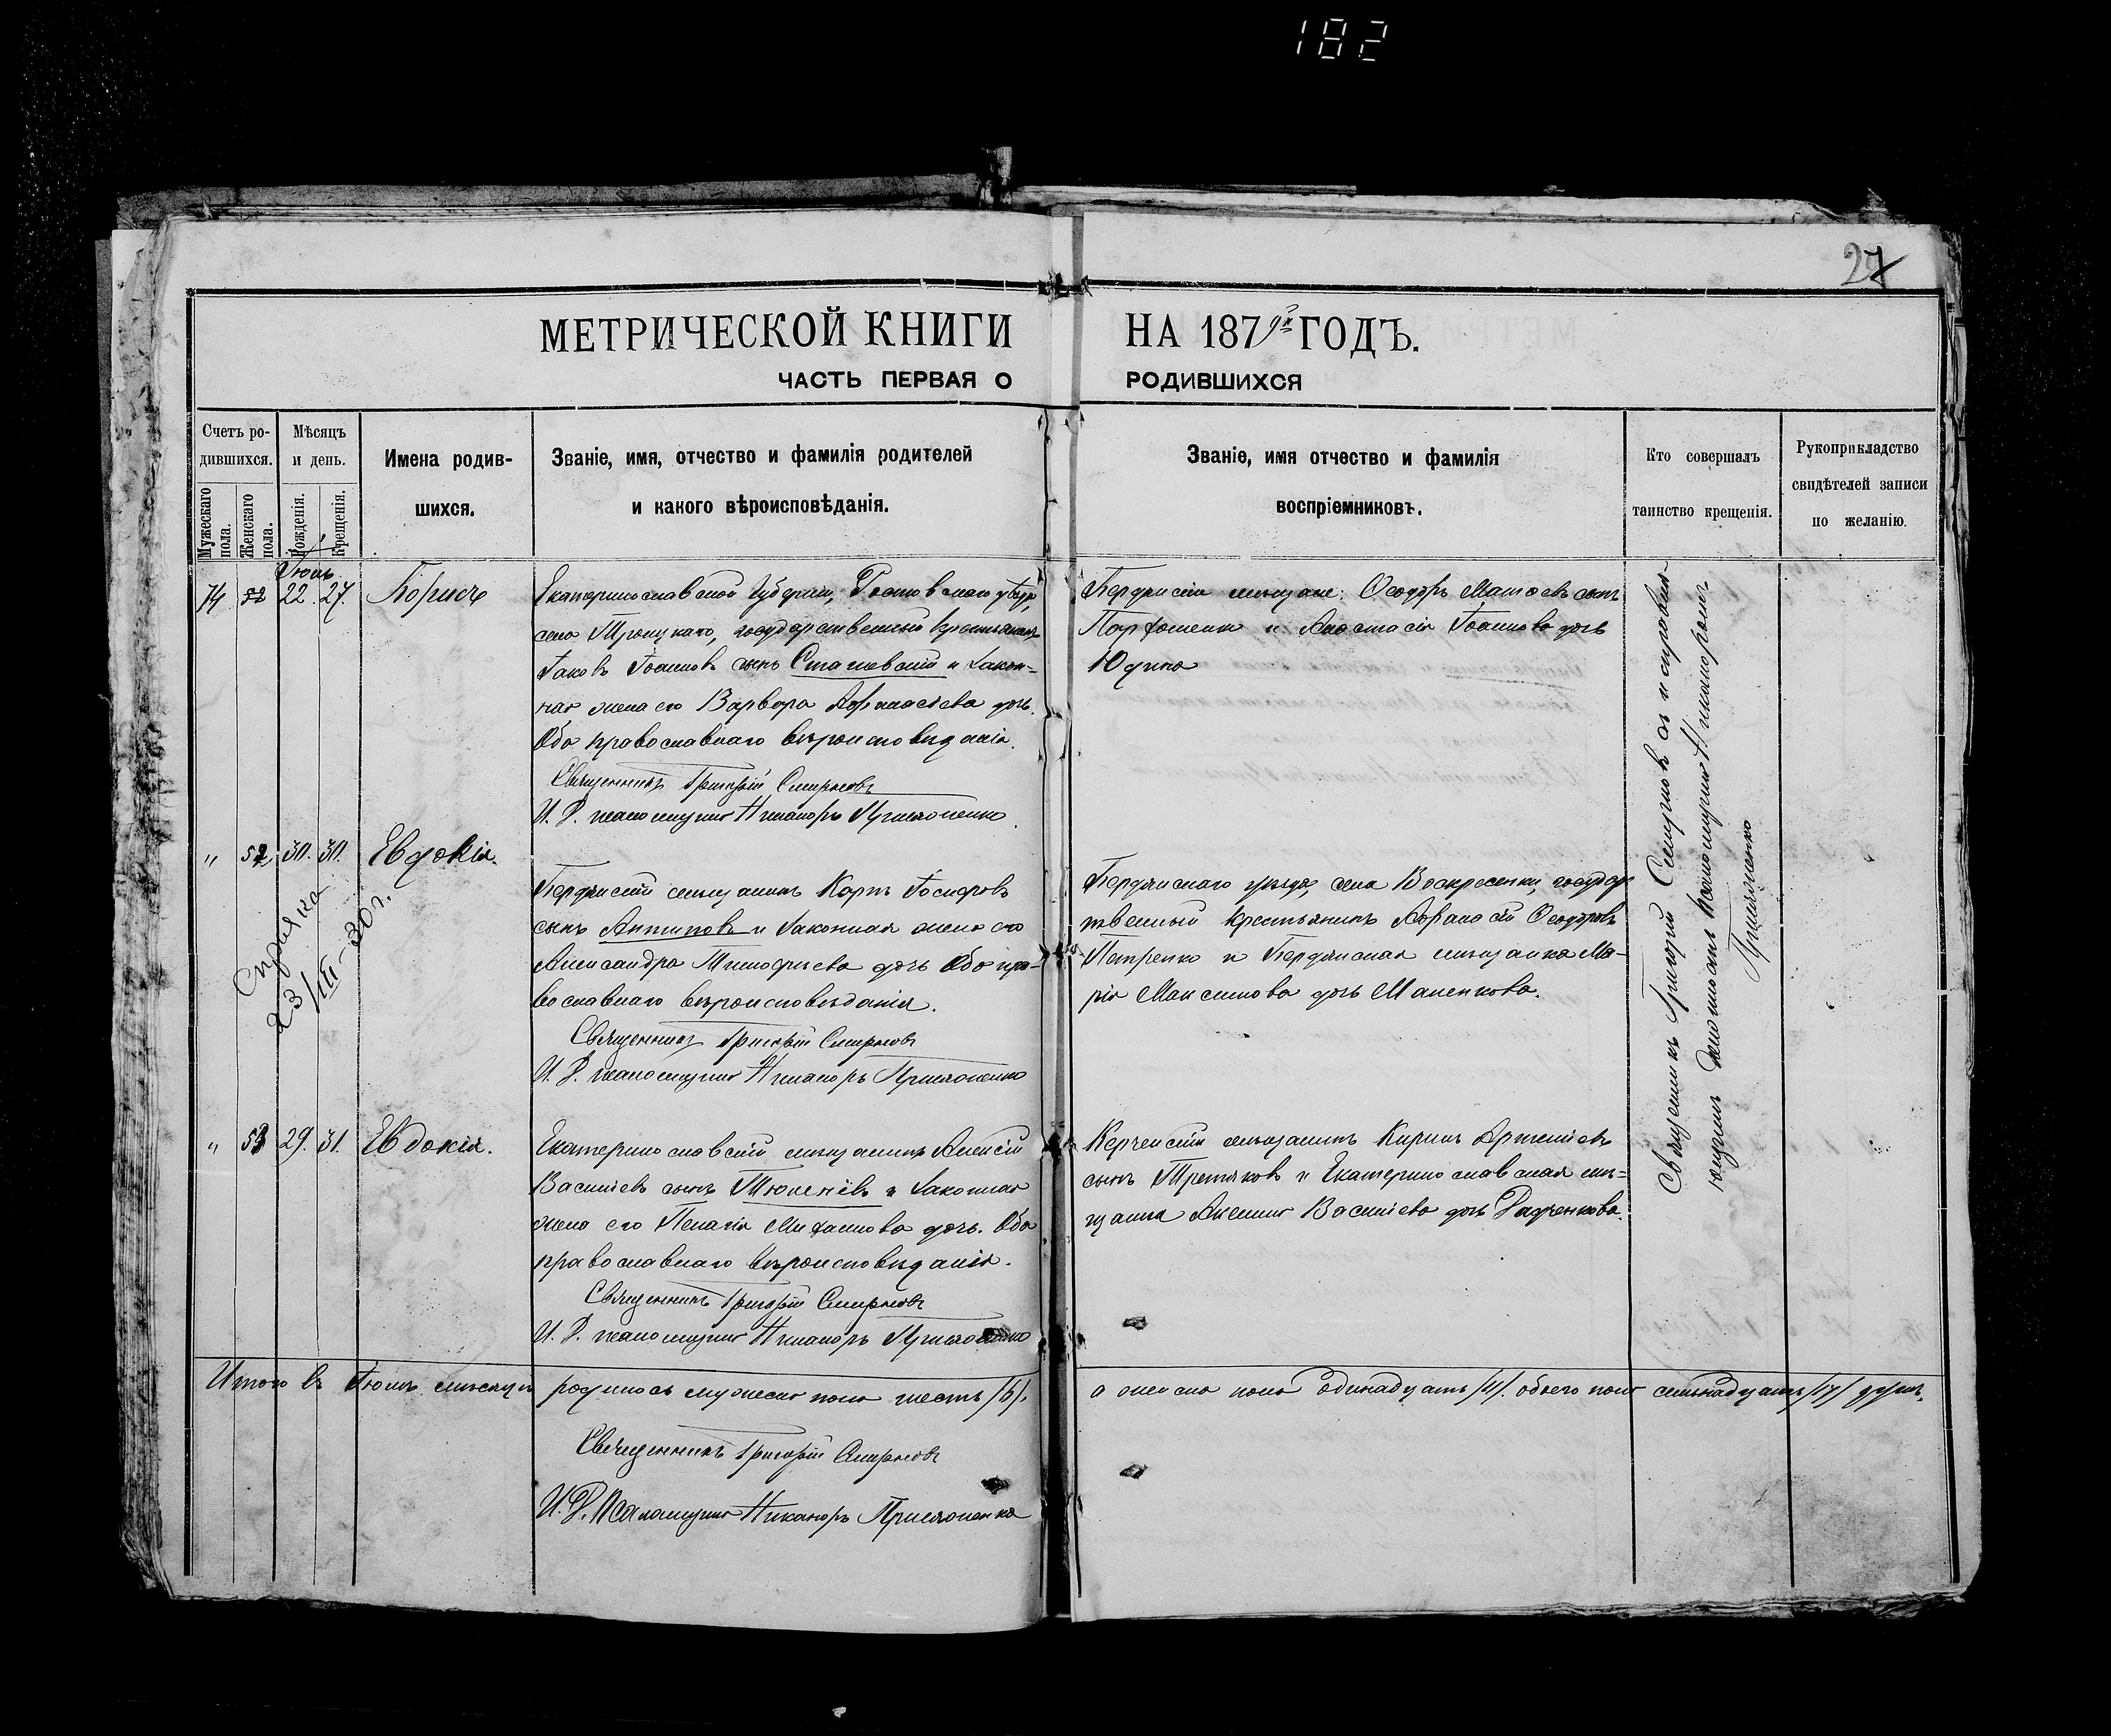 182
27
МЕТРИЧЕСКОЙ КНИГИ НА 1879й ГОДЪ.
ЧАСТЬ ПЕРВАЯ О РОДИВШИХСЯ
Счетъ родившихся.
Мужескаго пола.
Женскаго пола.
Мѣсяцъ и день.
Рожденія.
Крещенія.
Имена родившихся.
Званіе, имя, отчество и фамилія родителей
и какого вѣроисповѣданія.
Званіе, имя отчество и фамилія
воспріемниковъ.
Кто совершалъ
таинство крещенія.
Рукоприкладство
свидѣтелей записи
по желанію.
22. 27. Борисъ
Екатеринославской Губерніи, Ростовскаго уѣзда,
села Троицкаго, государственный крестьянинъ
Іаковъ Іоанновъ сынъ и закон-
ная жена его Варвара Афанасіева дочь.
Оба православнаго вѣроисповѣданія.
Священникъ Григорій Смирновъ
И. Д. псаломщика Никаноръ
Бердянскіе мѣщане: Ѳеодоръ сынъ
Парфоменко и Анастасія Іоаннова дочь
Юдина
" 52 30. 30. Евдокія.
Справка
23/III-30 г.
Бердянскій мѣщанинъ Карпъ Іосифовъ
сынъ Антиповъ и законная жена его
Александра Тимофѣева дочь Оба пра-
вославнаго вѣроисповѣданія.
Священникъ Григорій Смирновъ
И. Д. псаломщика Никаноръ
Бердянскаго уѣзда, села Воскресенки, государ
твенный крестьянинъ Афанасій Ѳеодоровъ
Петренко и Бердянская мѣщанка Ма-
рія Максимова дочь Маленкова.
" 53 29. 31. Евдокія.
Екатеринославскій мѣщанинъ Алексій
Василіевъ сынъ и законная
жена его Пелагія дочь. Оба
православнаго вѣроисповѣданія.
Священникъ Григорій Смирновъ
И. Д. псаломщика Никаноръ
Керченскій мѣщанинъ Кирилъ
сынъ Третьяковъ и Екатеринославская мѣ-
щанка Василіева дочь Радченкова.
Священникъ Григорій Смирновъ съ исправля-
ющимъ должность псаломщика Никаноромъ
Итого въ мѣсяцѣ родилось мужеска пола шесть /6/,
а женска пола одинадцать /11/. обоего пола семьнадцать /17/ душъ.
Священникъ Григорій Смирновъ
И. Д. Псаломщика Никаноръ